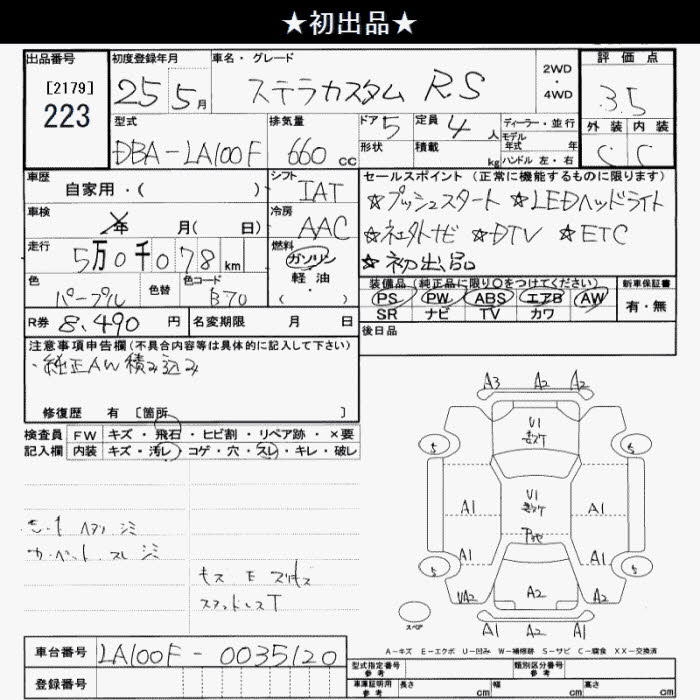 ★初出品★
出品番号 初度登録年月 車名・グレード 2WD・4WD 評価点
[2179]
223 25 5月 ステラカスタム RS 3.5
型式 排気量 ドア 5 定員 4人 ディーラー・並行 外装 内装
DBA-LA100F 660cc 形状 積載 kg モデル年式 年 C C
ハンドル 左・右
車歴 自家用・( ) シフト IAT セールスポイント (正常に機能するものに限ります)
☆プッシュスタート ☆LEDヘッドライト
車検 年 月( 日) 冷房 AAC ☆社外ナビ ☆DTV ☆ETC
走行 5万0千078km 燃料 ガソリン・軽油・( ) ☆初出品
色 パープル 色替 色コード B70 装備品(純正品に限り○をつけてください) 新車保証書
PS PW ABS エアB AW 有・無
SR ナビ TV カワ
R券 8,490円 名変期限 月 日 後日品
注意事項申告欄(不具合内容等は具体的に記入して下さい)
・純正AW積み込み
修復歴 有 [箇所 ]
検査員 FW キズ・飛石・ヒビ割・リペア跡・×要
記入欄 内装 キズ・汚レ・コゲ・穴・スレ・キレ・破レ
シート シミ
カーペット スレ シミ
キズ E
A3 A2 A2
U1
5 5
A1 U1 A1
A1 A1
5 5
UA2 A2 A2
スペア A1 A2 A1
A-キズ E-エクボ U-凹み W-補修跡 S-サビ C-腐食 XX-交換済
車台番号 LA100F-0035120 型式指定番号 参考 類別区分番号 参考
登録番号 車庫証明用 参考 長さ cm 幅 cm 高さ cm